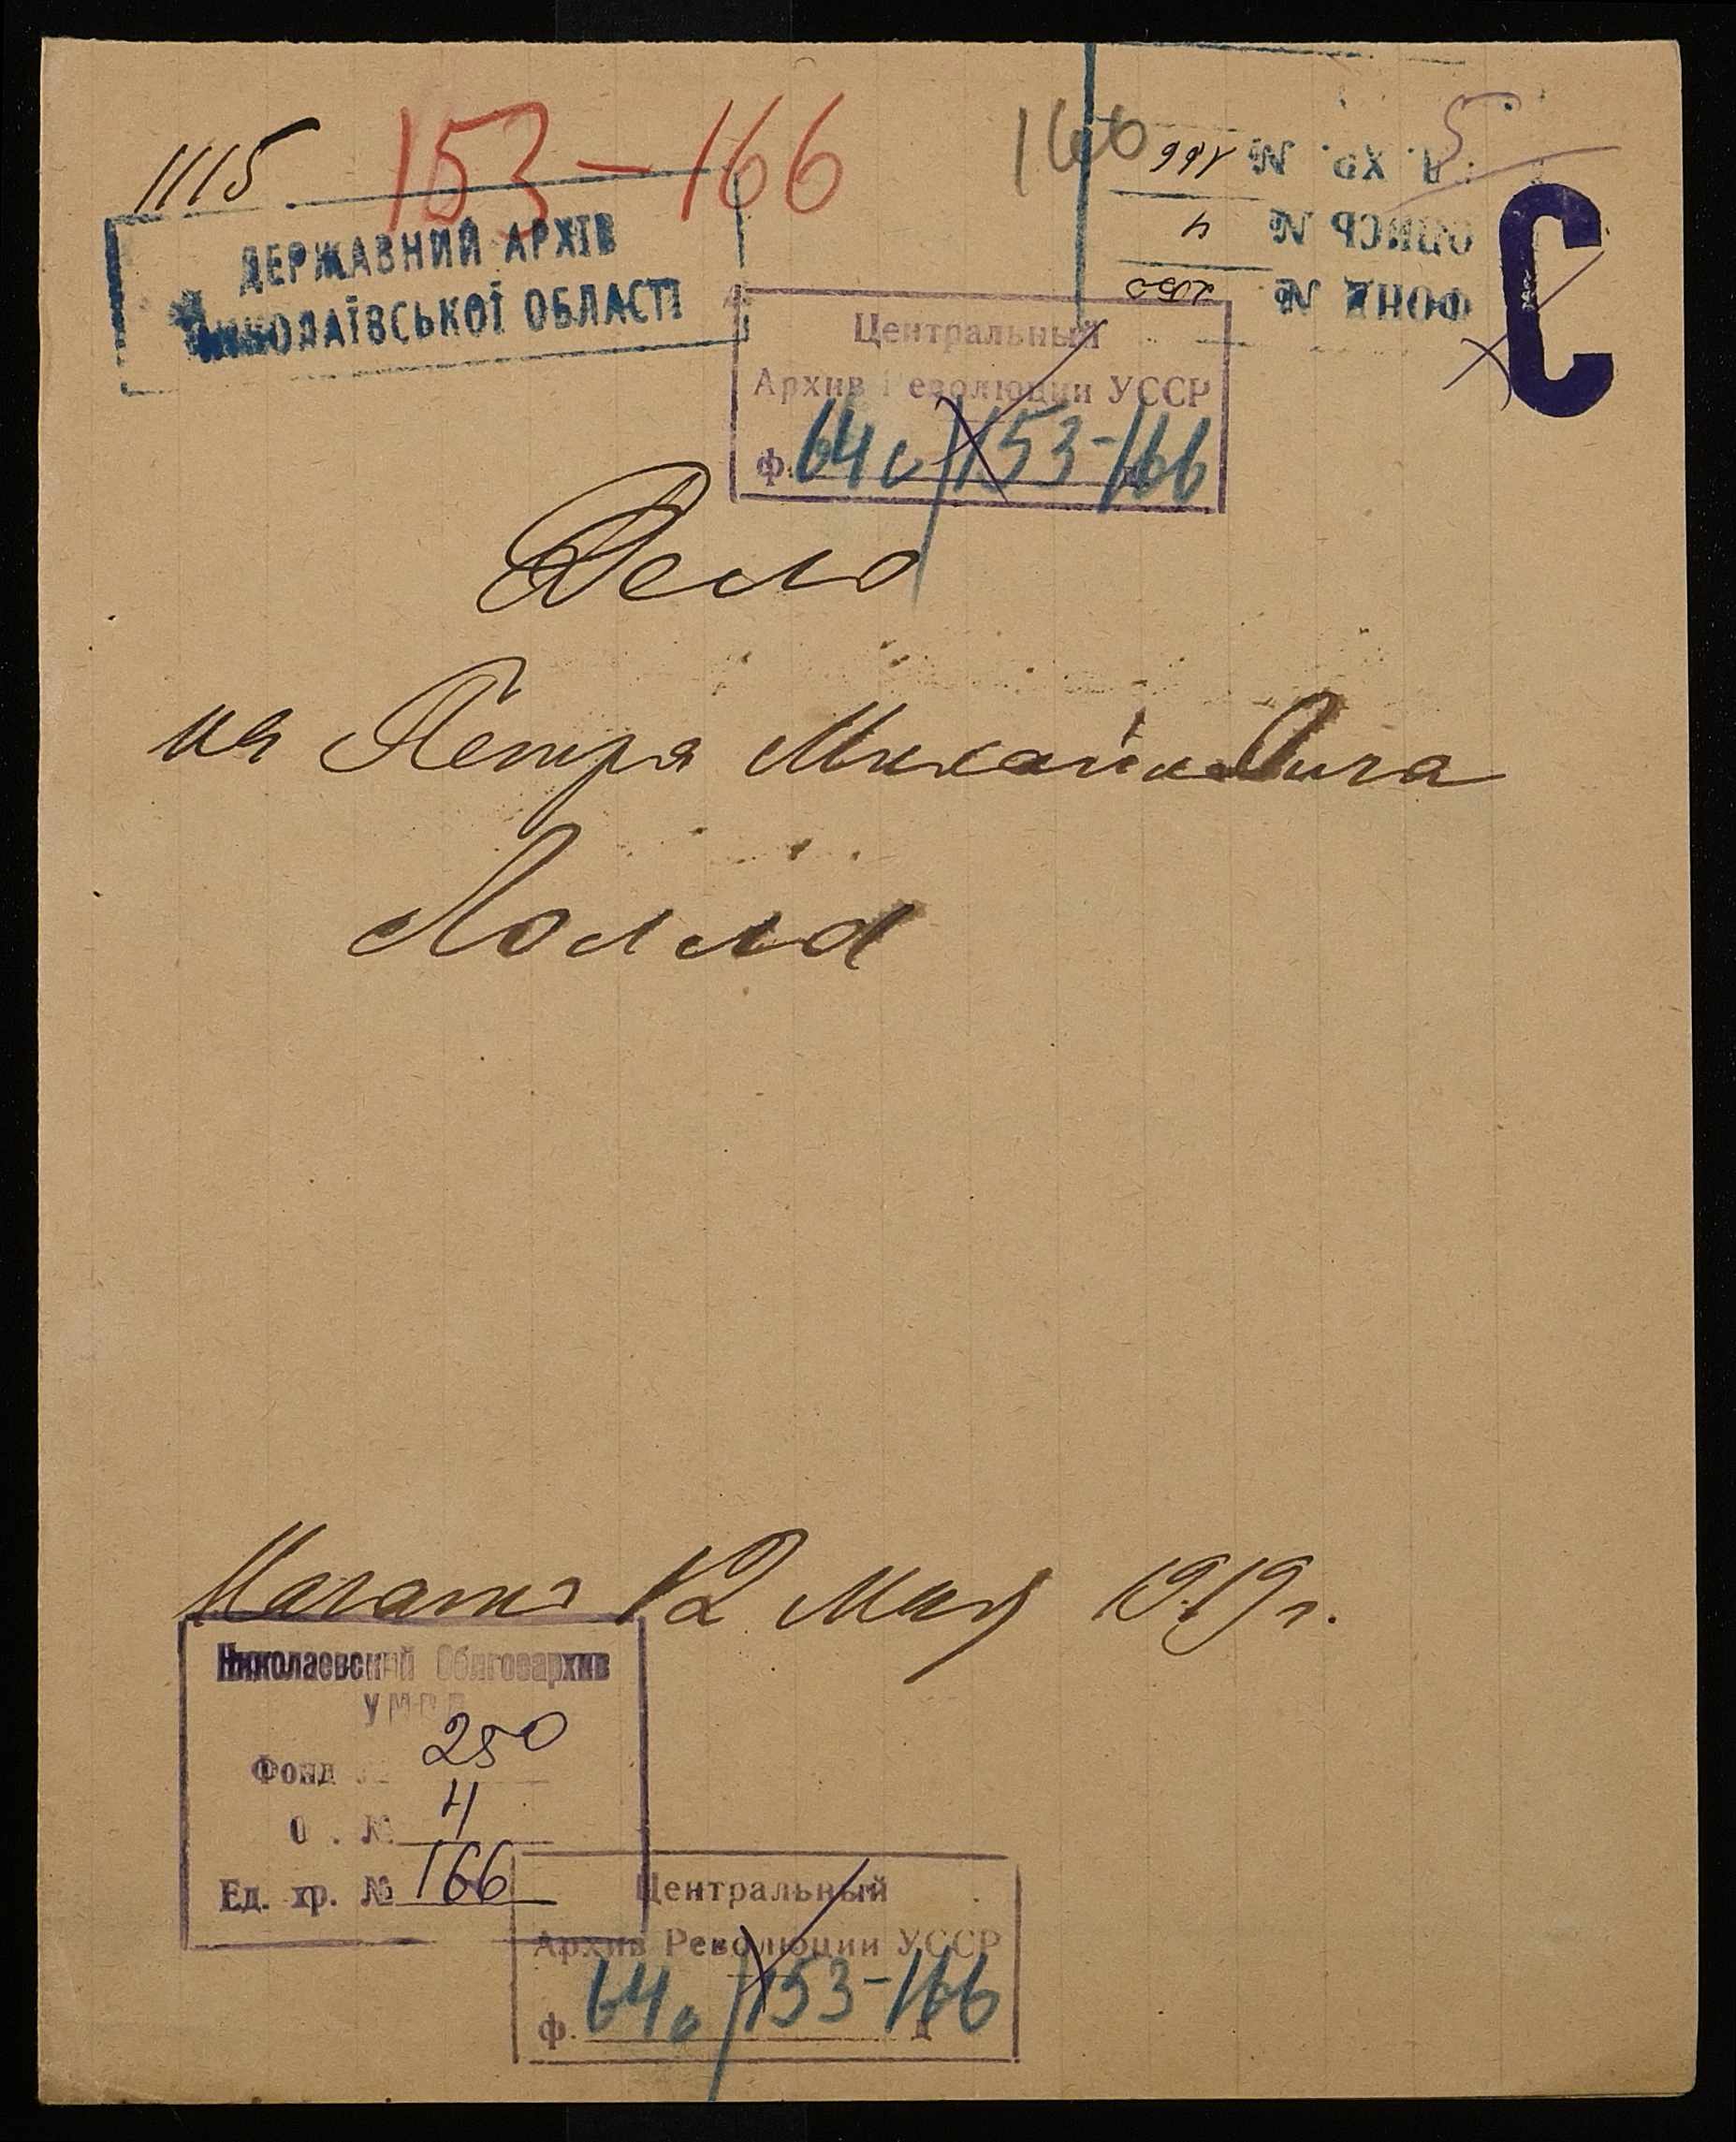 1115
153-166
166
5
ДЕРЖАВНИЙ АРХІВ
МИКОЛАЇВСЬКОЇ ОБЛАСТІ
ХР. № 166
ОПИСЬ № 4
ФОНД № 250
С
Центральный
Архив Революции УССР
ф. 64с/153-166
Дело
на Петра Михайловича
Лолла
Начато 12 мая 1919 г.
Николаевский Облгосархив
Фонд 250
О . № 4
Ед. хр. № 166
Центральный
Архив Революции УССР
ф. 64с/153-166